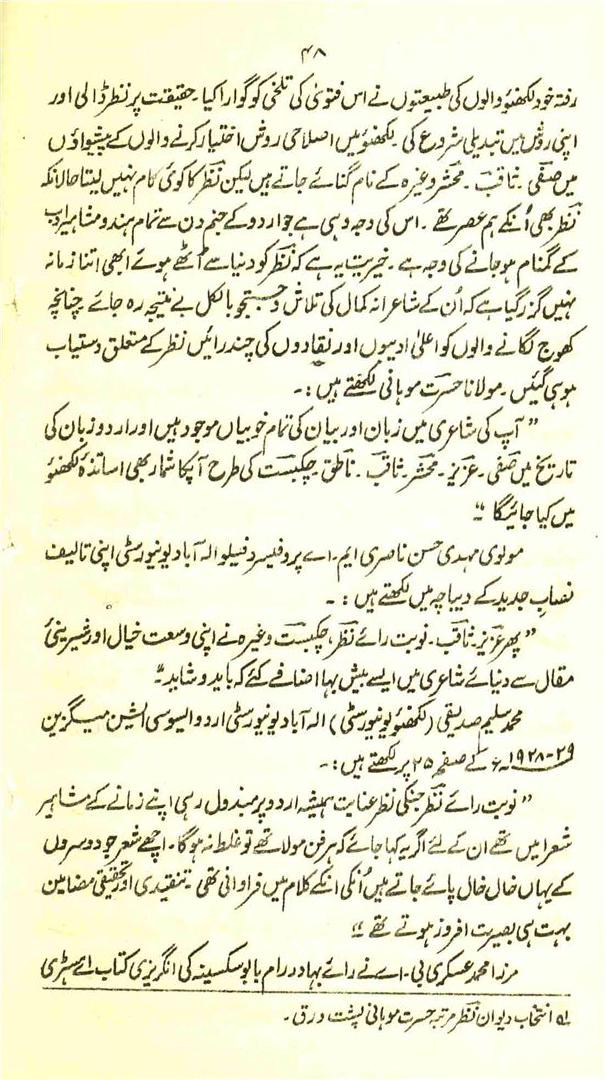 ۴۸
رفتہ خود لکھنؤ والوں کی طبیعتوں نے اس فتویٰ کی تلخی کو گوارا کیا۔ حقیقت پر نظر ڈالی اور
اپنی روش میں تبدیلی شروع کی۔ لکھنؤ میں اصلاحی روش اختیار کرنے والوں کے پیشواؤں
میں صفی۔ ثاقب۔ محشر وغیرہ کے نام گنائے جاتے ہیں لیکن نظر کا کوئی نام نہیں لیتا حالانکہ
نظر بھی اُنکے ہم عصر تھے۔ اس کی وجہ وہی ہے جو اردو کے جنم دن سے تمام ہندو مشاہیر ادب
کے گمنام ہو جانے کی وجہ ہے۔ خیریت یہ ہے کہ نظر کو دنیا سے اُٹھے ہوئے ابھی اتنا زمانہ
نہیں گزر گیا ہے کہ اُن کے شاعرانہ کمال کی تلاش و جستجو بالکل بے نتیجہ رہ جائے چنانچہ
کھوج لگانے والوں کو اعلیٰ ادیبوں اور نقادوں کی چند رائیں نظر کے متعلق دستیاب
ہو ہی گئیں۔ مولانا حسرت موہانی لکھتے ہیں :۔
”آپ کی شاعری میں زبان اور بیان کی تمام خوبیاں موجود ہیں اور اردو زبان کی
تاریخ میں صفی۔ عزیز۔ محشر۔ ثاقب۔ ناطق۔ چکبست کی طرح آپکا شمار بھی اساتذۂ لکھنؤ
میں کیا جائیگا“
مولوی مہدی حسن ناصری ایم۔ اے پروفیسر و فیلو الہ آباد یونیورسٹی اپنی تالیف
نصاب جدید کے دیباچہ میں لکھتے ہیں :۔
”پھر عزیز۔ ثاقب۔ نوبت رائے نظر، چکبست وغیرہ نے اپنی وسعت خیال اور شیرینیٔ
مقال سے دنیائے شاعری میں ایسے بیش بہا اضافے کئے کہ باید و شاید“
محمد سلیم صدیقی (لکھنؤ یونیورسٹی) الہ آباد یونیورسٹی اردو ایسوسی ایشن میگزین
۲۹-۱۹۲۸ء کے صفحہ ۲۵ پر لکھتے ہیں :۔
”نوبت رائے نظر جنکی نظر عنایت ہمیشہ اردو پر مبذول رہی اپنے زمانے کے مشاہیر
شعرا میں تھے ان کے لئے اگر یہ کہا جائے کہ ہر فن مولا تھے تو غلط نہ ہوگا۔ اچھے شعر جو دوسروں
کے یہاں خال خال پائے جاتے ہیں اُنکی انکے کلام میں فراوانی تھی۔ تنقیدی اور تحقیقی مضامین
بہت ہی بصیرت افروز ہوتے تھے“
مرزا محمد عسکری بی۔ اے نے رائے بہادر رام بابو سکسینہ کی انگریزی کتاب اے ہسٹری
انتخاب دیوان نظر مرتبہ حسرت موہانی پشت ورق۔